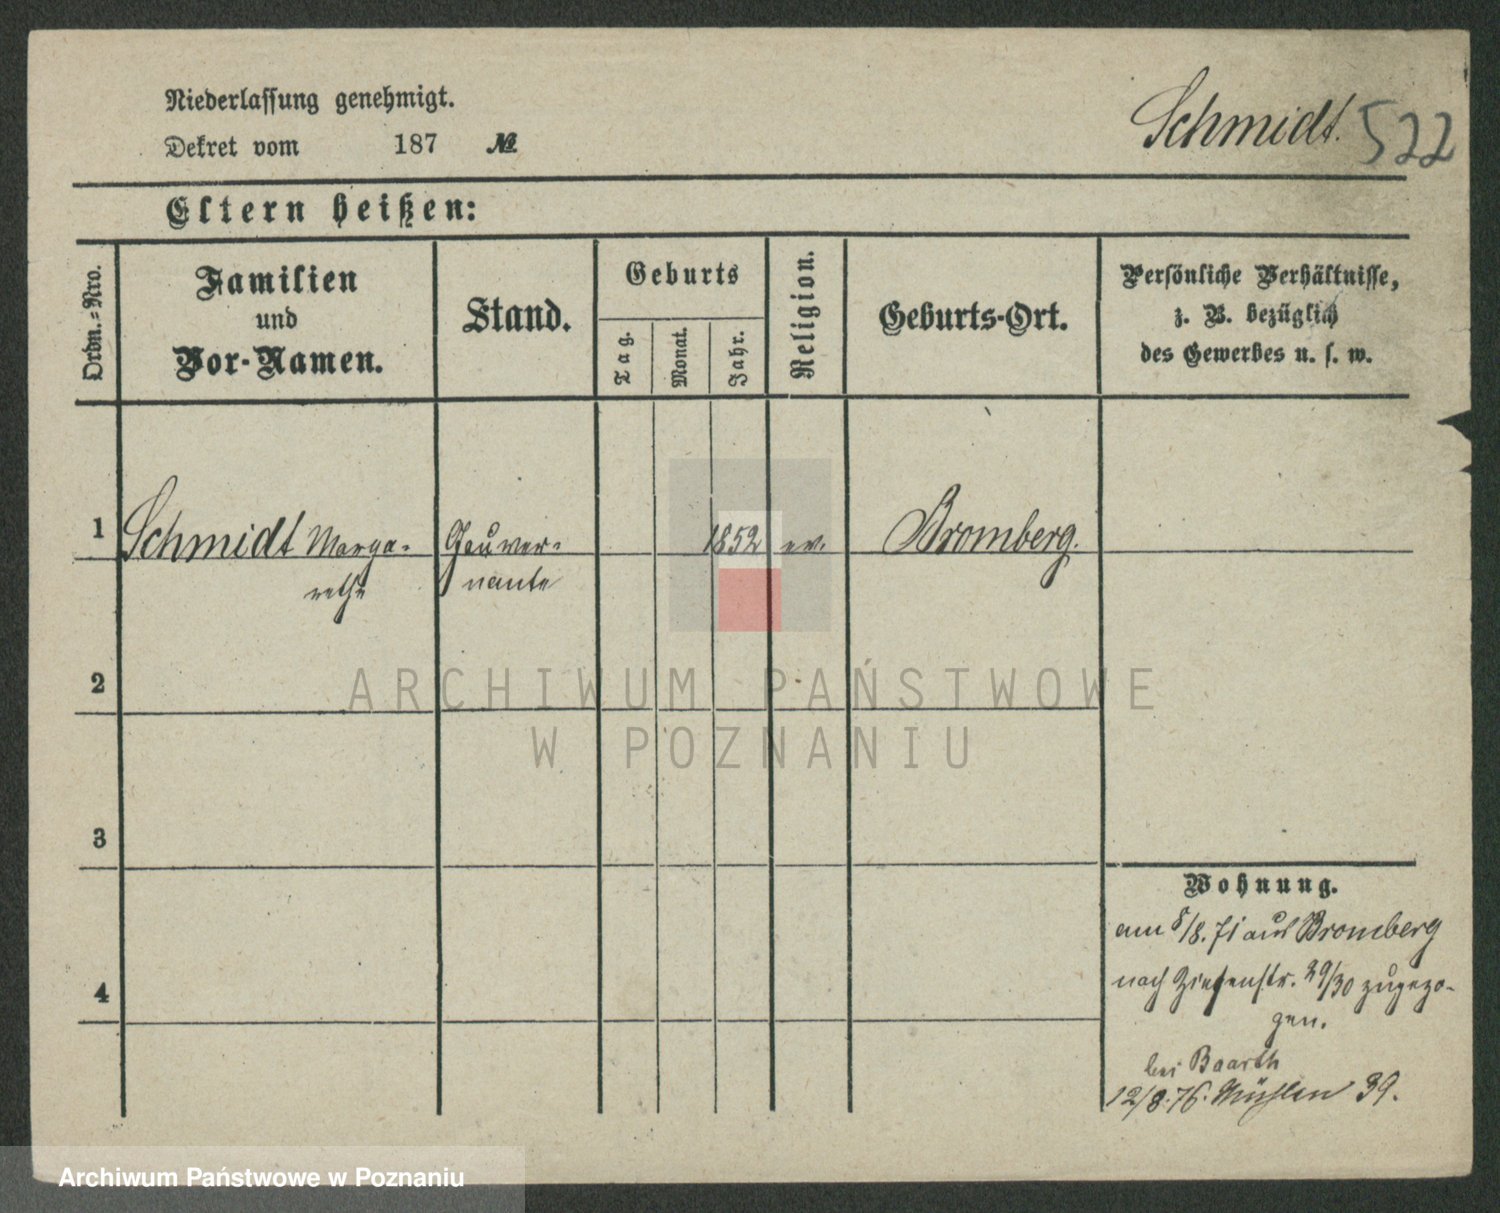 Niederlassung genehmigt.
Dekret vom 187 №
Schmidt. 522
Eltern heißen:
Ordn.=Nro.
Familien
und
Vor-Namen.
Stand.
Geburts
Tag.
Monat.
Jahr.
Religion.
Geburts-Ort.
Persönliche Verhältnisse,
z. B. bezüglich
des Gewerbes u. s. w.
1 Schmidt Marga- Gouver- 1852 ev. Bromberg.
rethe nante
2
3
4
ARCHIWUM PAŃSTWOWE
W POZNANIU
Wohnung.
am 8/8. 71 aus Bromberg
nach 29/30 zugezo-
gen.
bei Baarth
12/8. 76. Mühlen 39.
Archiwum Państwowe w Poznaniu